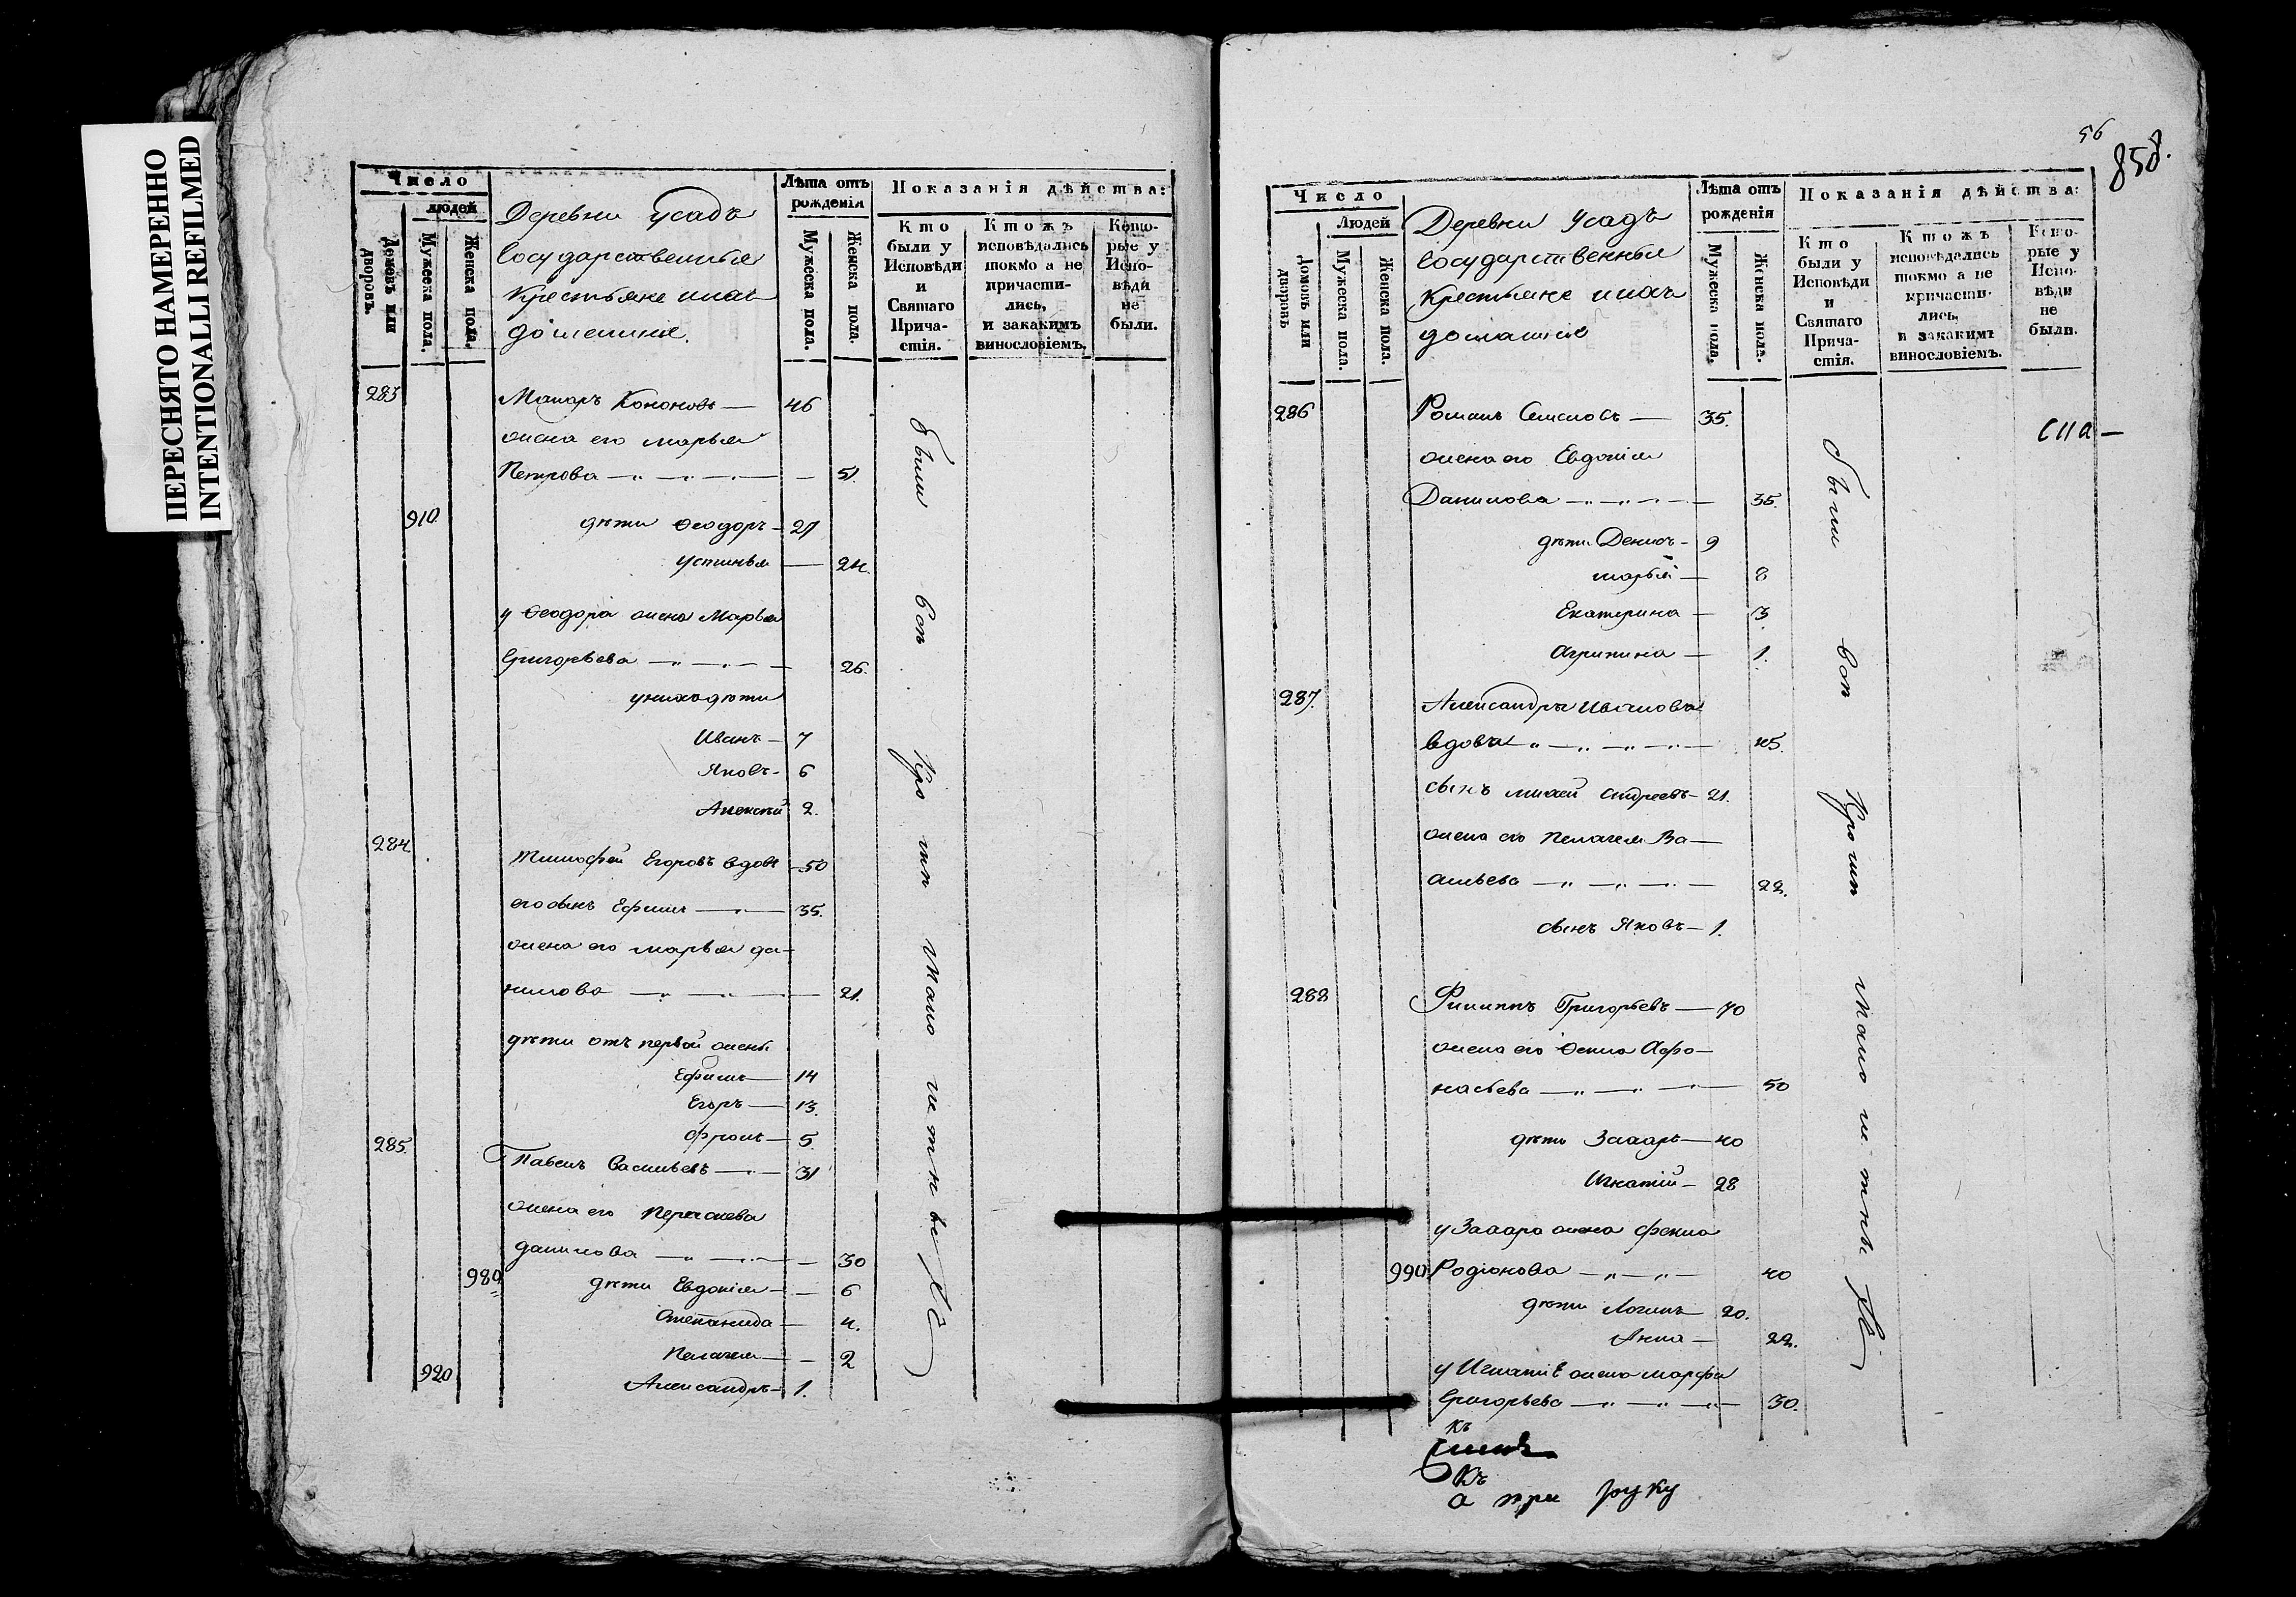 ПЕРЕСНЯТО НАМЕРЕННО
INTENTIONALLI REFILMED
Число
людей
Домовъ или дворовъ.
Мужеска пола.
Женска пола.
Деревни Усадъ
Государственныя
Крестьяне и ихъ
домашнія.
Лѣта отъ рожденія
Мужеска пола.
Женска пола.
Показанія дѣйства:
Кто были у Исповѣди и Святаго Причастія.
Ктожъ исповѣдались токмо а не причастились, и закакимъ винословіемъ.
Которые у Исповѣди не были.
283 Макаръ Кононовъ — 46
жена его Марья
Петрова — 51.
910. дѣти Ѳеодоръ — 27
Устинья — 24.
у Ѳеодора жена Марья
Григорьева — 26.
у нихъ дѣти
Иванъ — 7
Яковъ — 6
Алексѣй 2.
284 Тимофей Егоровъ вдовъ — 50
его сынъ Ефимъ — 35.
жена его Марья Да-
нилова — 21.
дѣти отъ первой жены
Ефимъ — 14
Егоръ — 13.
Фролъ — 5.
285. Павелъ Васильевъ — 31
жена его
Данилова — 30
980 дѣти Евдокія — 6
Степанида — 4.
Пелагея — 2
920 Александръ — 1.
были
всѣ
Кро
мѣ
мало
лѣтныхъ
56
858.
Число
Людей
Домовъ или дворовъ
Мужеска пола.
Женска пола.
Деревни Усадъ
Государственныя
Крестьяне и ихъ
домашнія
Лѣта отъ рожденія
Мужеска пола.
Женска пола.
Показанія дѣйства:
Кто были у Исповѣди и Святаго Причастія.
Ктожъ исповѣдались токмо а не причастились, и закакимъ винословіемъ.
Которые у Исповѣди не были.
286 Романъ Семеновъ — 35.
жена его Евдокія
Данилова — 35.
дѣти Денисъ — 9
Марья — 8
Екатерина — 3
Агрипина — 1.
287. Александра Иванова
вдова — 45.
сынъ Михей Андреевъ — 21.
жена его Пелагея Ва-
сильева — 22.
сынъ Яковъ — 1.
288 Филиппъ Григорьевъ — 70
жена его Ѳекла Афо-
насьева — 50
дѣти Захаръ — 40
Игнатій — 28
у Захара жена Фекла
990 Родіонова — 40
дѣти Логинъ 20.
Анна — 22.
у Игнатія жена Марфа
Григорьева — 30.
были
всѣ
Кромѣ
мало
лѣтныхъ
къ
къ
а при руку